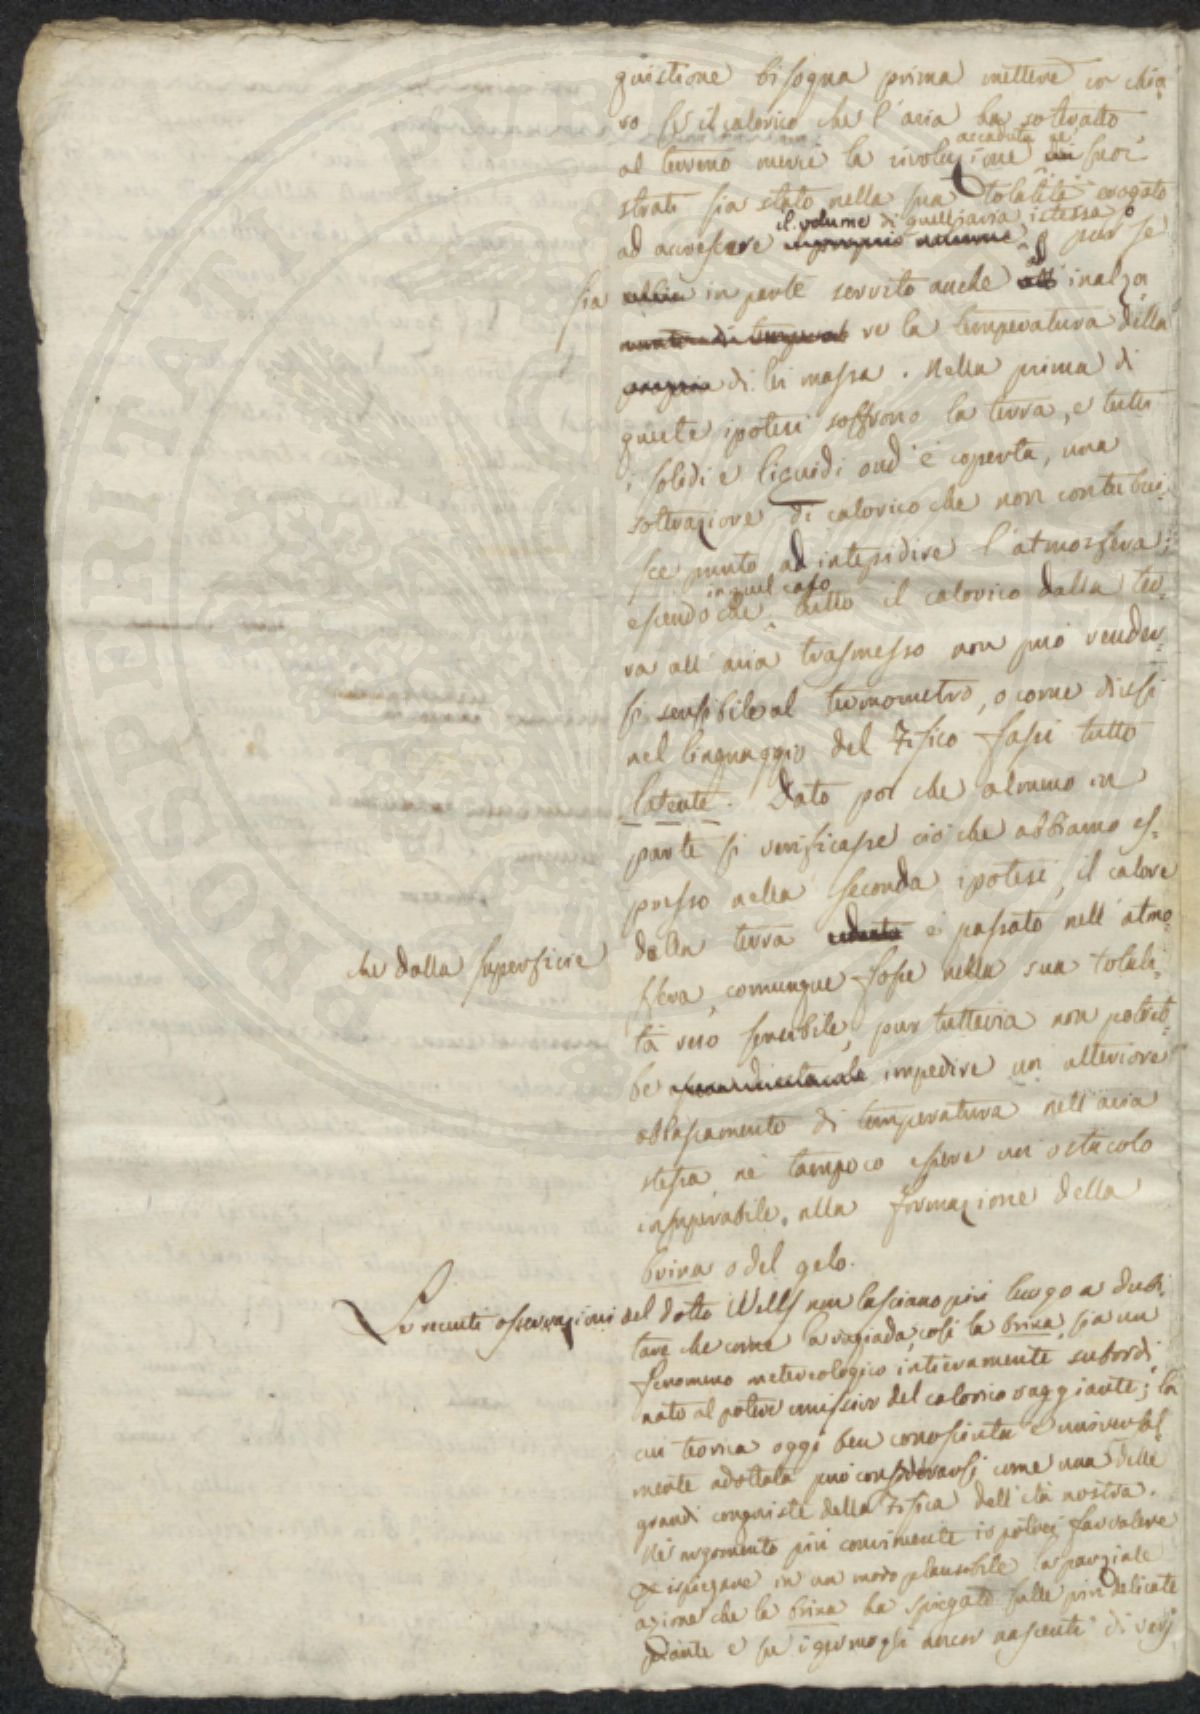 quistione bisogna prima mettere in chia-
ro se il calorico che l'aria ha sottratto
accaduta ne'
al terreno mercè la rivoluzione dei suoi
strati sia stato nella sua totalità erogato
il volume di quell'aria istessa o
ad accrescere pur se
sia in parte servito anche ad inalza
re la temperatura della
propria di lei massa. Nella prima di
queste ipotesi soffrono la terra, e tutti
i solidi e liquidi ond'è coperta, una
sottrazione di calorico che non contribui-
sce punto ad intepidire l'atmosfera;
in quel caso
essendo che tutto il calorico dalla ter-
ra all'aria trasmesso non può render-
si sensibile al termometro, o come dicesi
nel linguaggio del Fisico fassi tutto
latente. Dato poi che almeno in
parte si verificasse ciò che abbiamo es-
presso nella seconda ipotesi, il calore
che dalla superficie
della terra è passato nell'atmo-
sfera, comunque fosse nella sua totali-
tà reso sensibile, pur tuttavia non potreb-
be impedire un ulteriore
abbassamento di temperatura nell'aria
stessa, nè tampoco essere un ostacolo
insuperabile, alla formazione della
brina o del gelo.
Le recenti osservazioni del dotto Wells non lasciano più luogo a dubi-
tare che come la rugiada, così la brina, sia un
fenomeno metereologico intieramente subordi-
nato al potere emissivo del calorico raggiante; la
cui teoria oggi ben conosciuta e universal-
mente adottata può considerarsi come una delle
grandi conquiste della Fisica dell'età nostra.
Nè argomento più convincente io potrei far valere
x ispiegare in un modo plausibile la parziale
azione che la brina ha spiegato sulle più delicate
piante e su i germogli ancor nascenti di varj